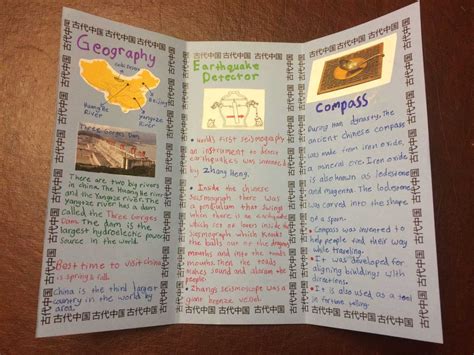 古代中国 古代中国 古代中国
Geography
Gobi Desert
Beijing
Huang He River
Yangtze River
Three Gorges Dam
There are two big rivers
in china. The Huang he River
and the Yangtze River. The
yangtze river has a dam
called the Three Gorges
Dam. The dam is the
largest hydroelectric power
source in the world.
Best time to visit china
is spring & fall.
China is the third largest
country in the world by
area.
Earthquake
Detector
World's first seismograph
an instrument to detect
earthquakes was invented
by Zhang Heng.
Inside the chinese
seismograph there was
a pendulum that swings
when there is an earthquake
Zhang's seismoscope was a
giant bronze vessel.
Compass
During Han dynasty, the
ancient chinese compass
was made from iron oxide,
a mineral ore. Iron oxide,
is also known as lodestone
and magnet. The lodestone
was carved into the shape
of a spoon.
Compass was invented to
help people find their way
while traveling.
It was developed for
aligning buildings and
directions.
It is also used as a tool
in fortune telling.
古代中国 古代中国 古代中国